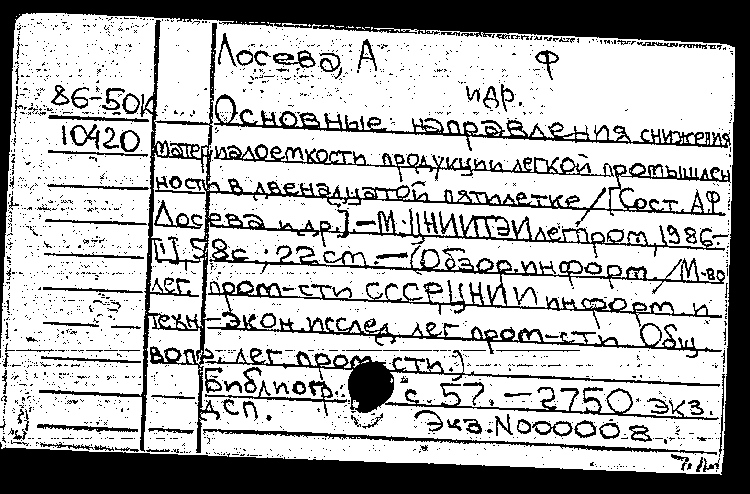 Лосева, А Ф
и др.
86-50к
10420
Основные направления снижения
материалоемкости продукции легкой промышлен
ности в двенадцатой пятилетке / [Сост. А.Ф.
Лосева и др.] - М.: ЦНИИТЭИлегпром, 1986.-
[1], 58с.; 22 см. - (Обзор. информ. / М-во
лег. пром-сти СССР, ЦНИИ информ. и
техн.-экон. исслед. лег. пром-сти. Общ.
вопр. лег. пром-сти.)
Библиогр.: с. 57. - 2750 экз.
ДСП. Экз. N000008.